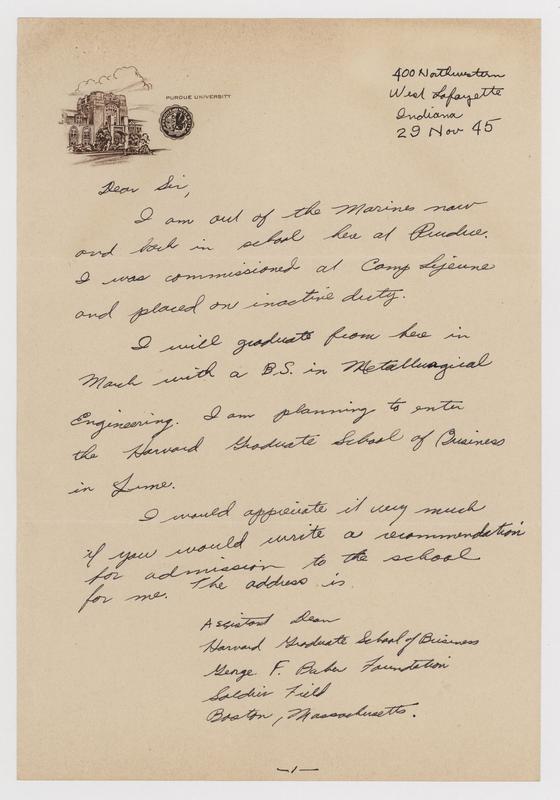 PURDUE UNIVERSITY
400 Northwestern
West Lafayette
Indiana
29 Nov 45
Dear Sir,
I am out of the Marines now
and back in school here at Purdue.
I was commissioned at Camp Lejeune
and placed on inactive duty.
I will graduate from here in
March with a B.S. in Metallurgical
Engineering. I am planning to enter
the Harvard Graduate School of Business
in June.
I would appreciate it very much
if you would write a recommendation
for admission to the school
for me. The address is
Assistant Dean
Harvard Graduate School of Business
George F. Baker Foundation
Soldier Field
Boston, Massachusetts.
—1—